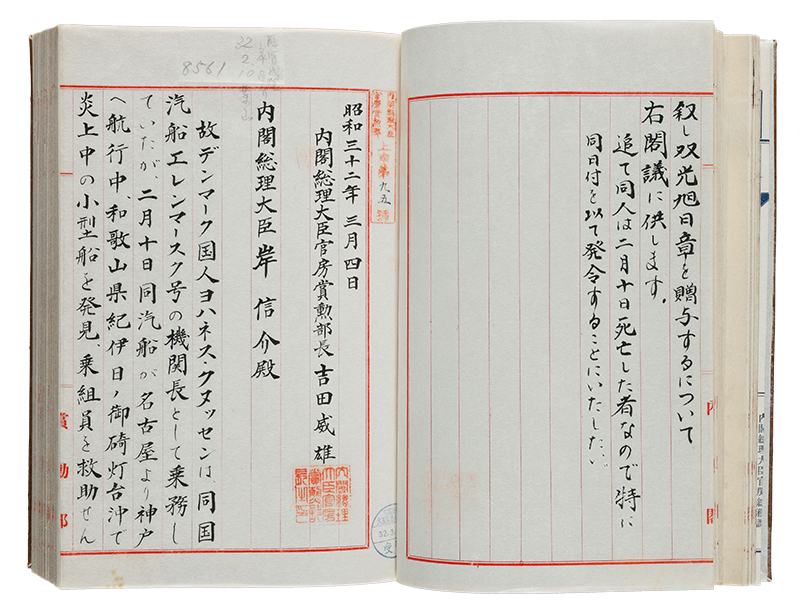 叙し双光旭日章を贈与するについて
右閣議に供します。
追て同人は二月十日死亡した者なので特に
同日付を以て発令することにいたしたい
内閣
上申第九五号
昭和三十二年三月四日
内閣総理大臣官房賞勲部長 吉田威雄
内閣総理大臣 岸信介殿
故デンマーク国人ヨハネス・クヌッセンは、同国
汽船エレンマースク号の機関長として乗務し
ていたが、二月十日同汽船が名古屋より神戸
へ航行中、和歌山県紀伊日ノ御碕灯台沖で
炎上中の小型船を発見、乗組員を救助せん
賞勲部
8561
22
2.
10